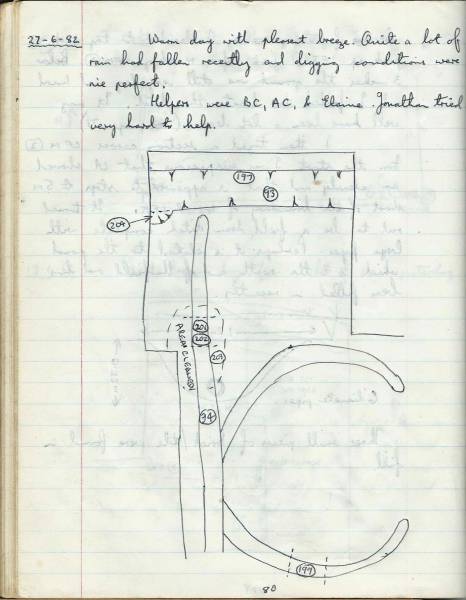 27-6-82 Warm day with pleasent breeze. Quite a lot of
rain had fallen recently and digging conditions were
nie perfect.
Helpers were BC, AC, & Elaine. Jonathan tried
very hard to help.
197
93
204
201
202
203
AREA CLEANED
94
199
80